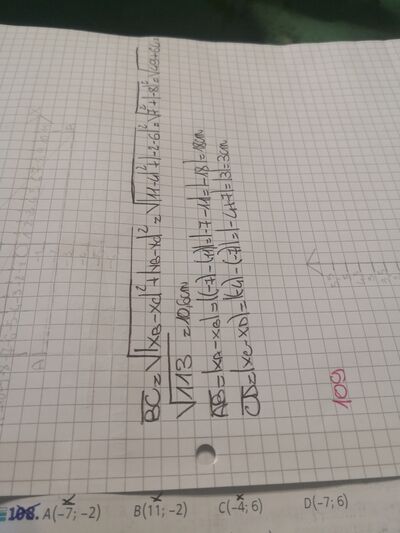 BC = √|xB-xC|² + |yB-yC|² = √|11-4|² + |-2-6|² = √7² + |-8|² = √49+64
√113 = 10,6cm
AB = |xA-xB| = |(-7)-(11)| = |-7-11| = |-18| = 18cm
CD = |xC-xD| = |(-4)-(-7)| = |-4+7| = |3| = 3cm
109
108. A(-7; -2) B(11; -2) C(-4; 6) D(-7; 6)